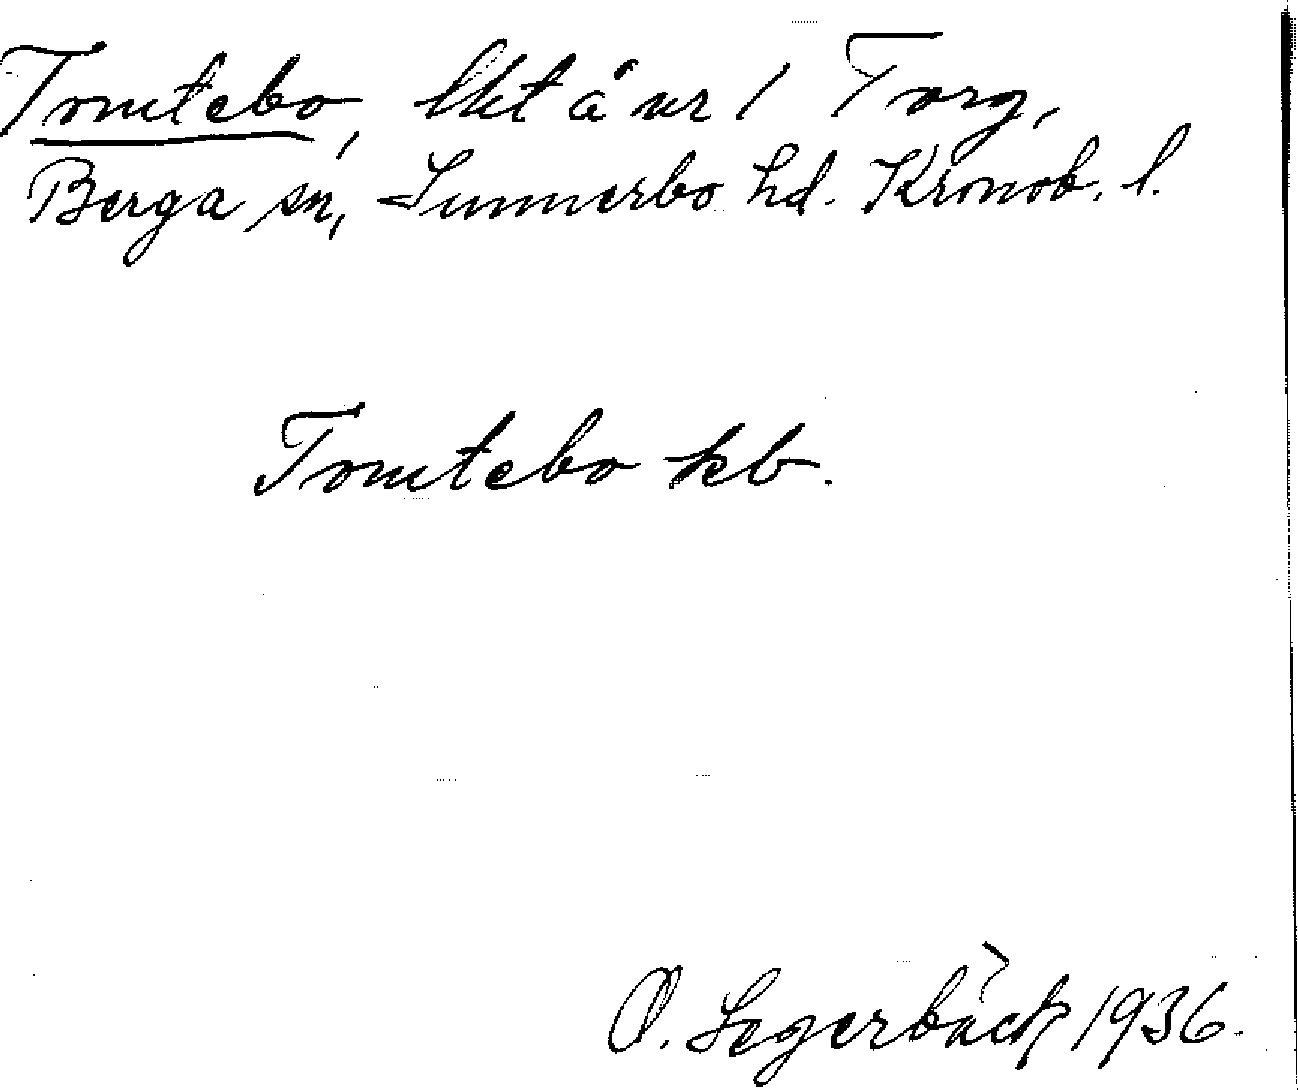 Tomtebo, lht å nr 1 Torg,
Berga sn, Sunnerbo hd. Kronob. l.
Tomtebo kb.
O. Segerbäck 1936.